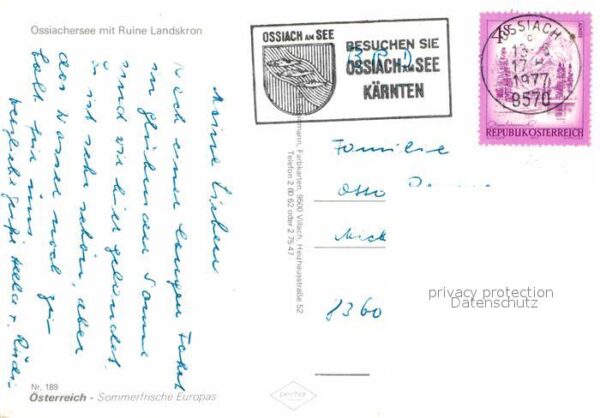 Ossiachersee mit Ruine Landskron
OSSIACH AM SEE
BESUCHEN SIE
OSSIACH AM SEE
KÄRNTEN
BRD
OSSIACH
c
17
1977
9570
REPUBLIK ÖSTERREICH
Meine Lieben
Nach einer langen Fahrt
in glühender Sonne
sind wir hier gelandet.
Es ist sehr schön, aber
das Wasser noch zu
kalt für uns
herzliche Grüße
Familie
Otto
8360
Farbkarten, 9500 Villach, Heizhausstraße 52
Telefon 2 80 62 oder 2 75 47
privacy protection
Datenschutz
Nr. 189
Österreich - Sommerfrische Europas